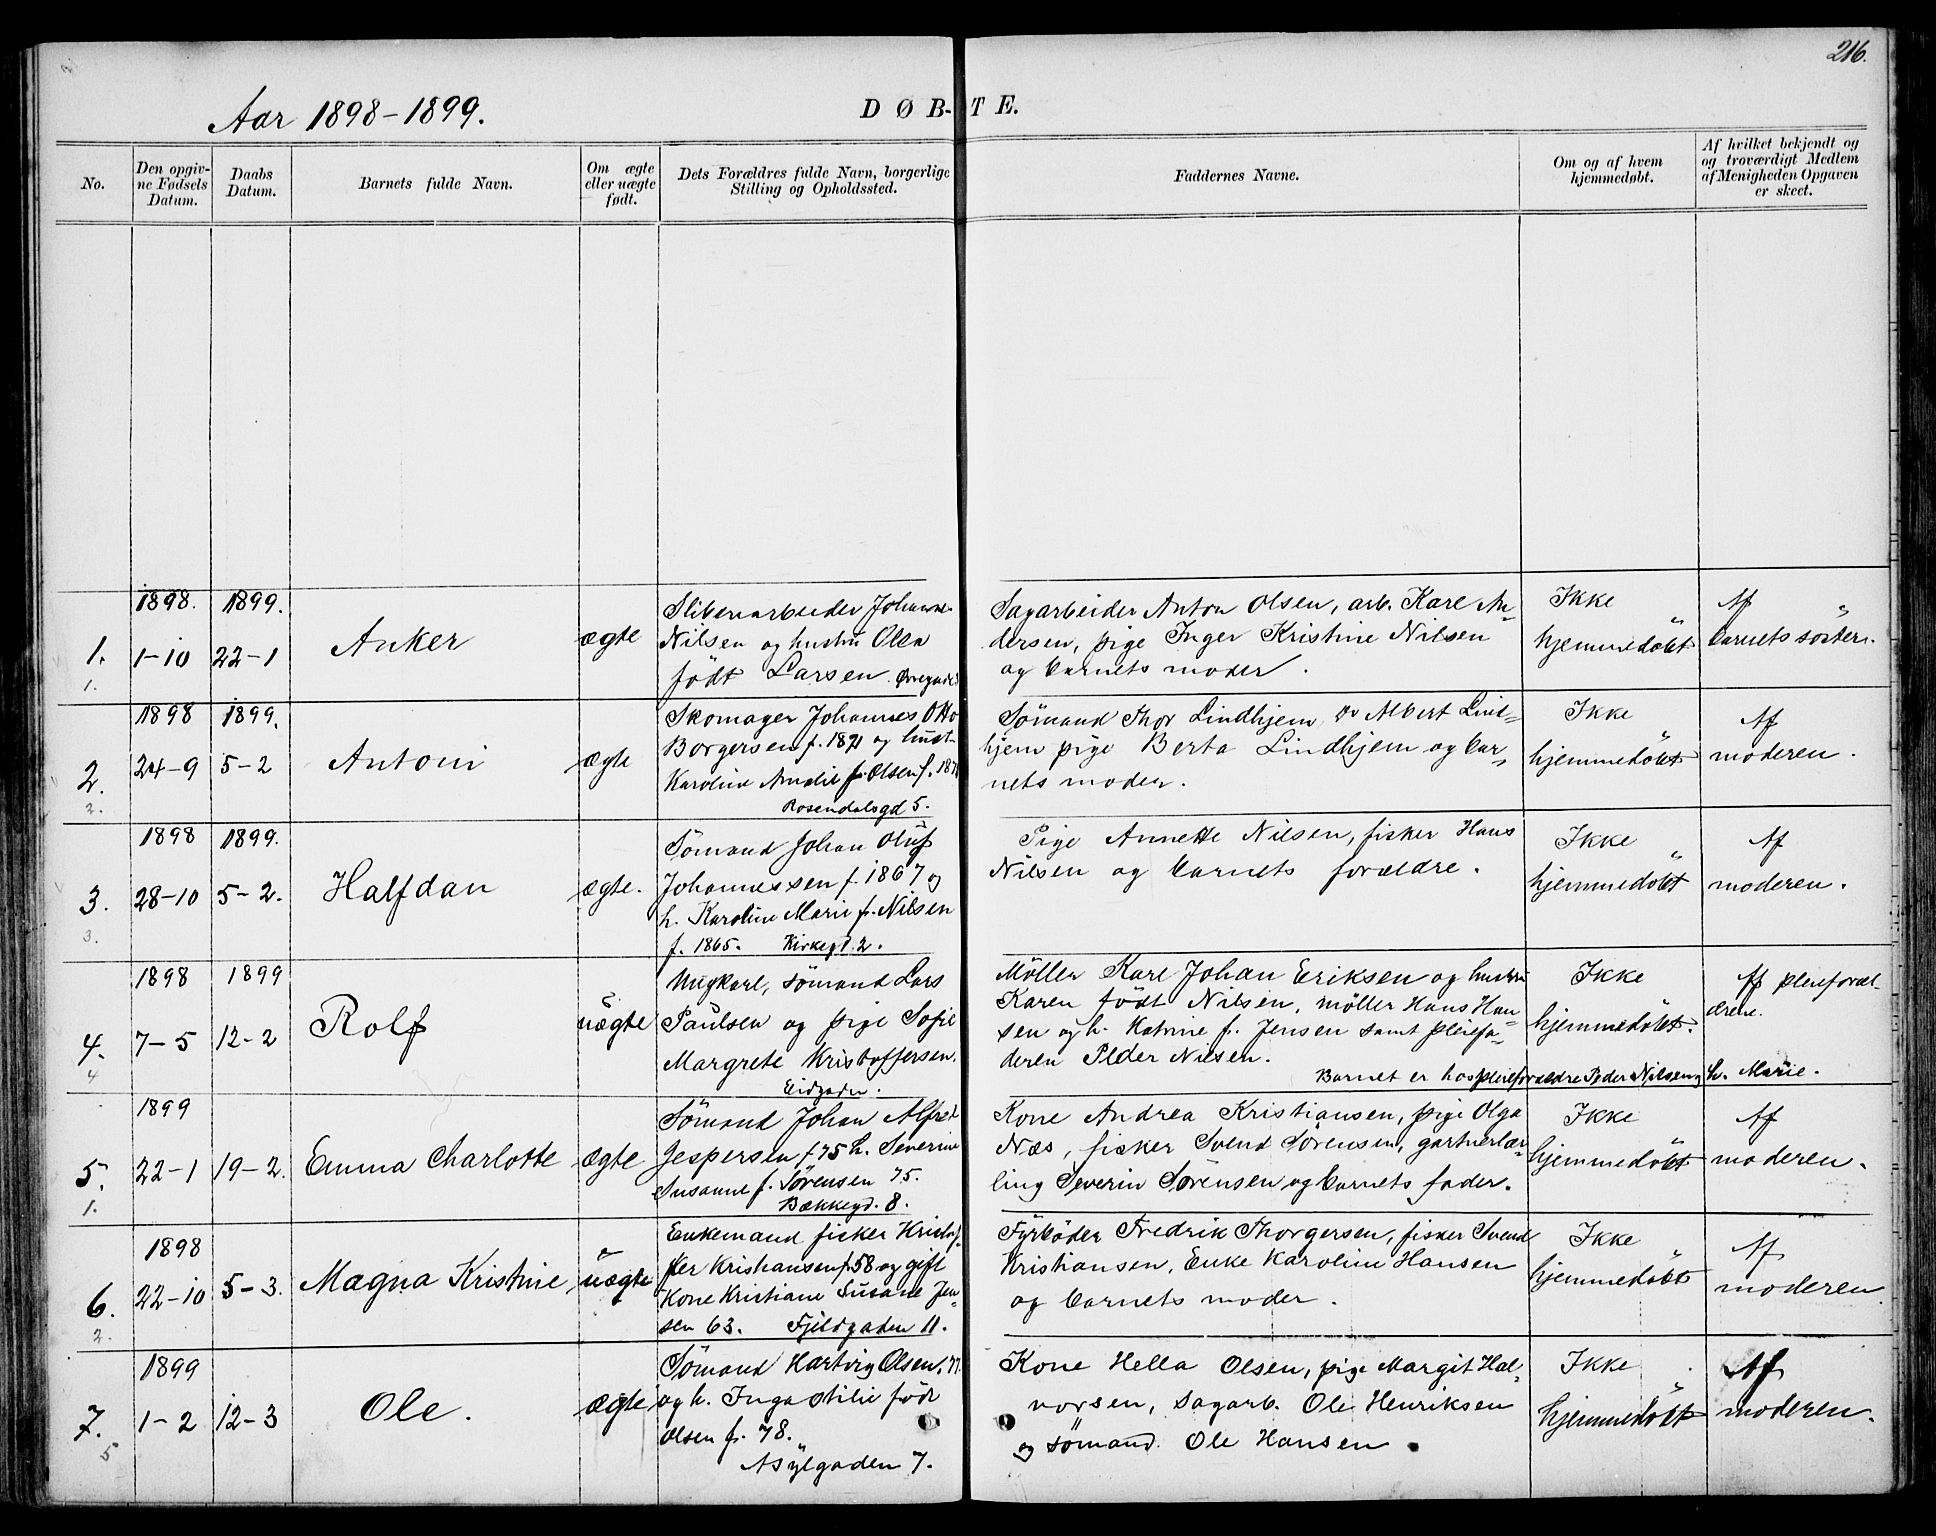 216.
Aar 1898-1899.
DØB-TE.
No.
Den opgiv-
ne Fødsels
Datum.
Daabs
Datum.
Barnets fulde Navn.
Om ægte
eller uægte
født.
Dets Forældres fulde Navn, borgerlige
Stilling og Opholdssted.
Faddernes Navne.
Om og af hvem
hjemmedøbt.
Af hvilket bekjendt og
og troværdigt Medlem
af Menigheden Opgaven
er skeet.
1.
1.
1898.
1-10
1899.
22-1
Anker
ægte
Sliberiarbeider Johannes
Nilsen og hustru Olea
født Larsen.
Sagarbeider Anton Olsen, arb. Karl An-
dersen, pige Inger Kristine Nilsen
og barnets moder.
Ikke
hjemmedøbt
Af
barnets søster.
2.
2.
1898
24-9
1899.
5-2
Antoni
ægte
Skomager Johannes Otto
Borgersen f. 1871 og hust.
Karoline Amalie f. Olsen f. 187
Rosendalsgd 5.
Sømand Thor Lindhjem, do Albert Lind-
hjem pige Berta Lindhjem og bar-
nets moder.
Ikke
hjemmedøbt
Af
moderen.
3.
3.
1898
28-10
1899.
5-2.
Halfdan
ægte.
Sømand Johan Oluf
Johannessen f. 1867 og
h. Karoline Marie f. Nilsen
f. 1865. Kirkegd. 2.
Pige Annette Nilsen, fisker Hans
Nilsen og barnets forældre.
Ikke
hjemmedøbt
Af
moderen.
4.
4
1898
7-5
1899
12-2
Rolf
uægte
Ungkarl, sømand Lars
Paulsen og pige Sofie
Margrete Kristoffersen.
Eidgaden.
Møller Karl Johan Eriksen og hustru
Karen født Nilsen, møller Hans Han-
sen og h. Katrine f. Jensen samt pleiefa-
deren Peder Nilsen.
Barnet er hos pleieforældre Peder Nilsen og h. Marie.
Ikke
hjemmedøbt.
Af pleieforæl-
drene.
5.
1.
1899
22-1
19-2.
Emma Charlotte
ægte
Sømand Johan Alfred
Jespersen f. 75 h. Severine
Susanne f. Sørensen 75.
Bækkegd. 8.
Kone Andrea Kristiansen, pige Olga
Næs, fisker Svend Sørensen, gartnerlær-
ling Severin Sørensen og barnets fader.
Ikke
hjemmedøbt
Af
moderen.
6.
2.
1898
22-10
5-3.
Magna Kristine
uægte
Enkemand fisker Kristof-
fer Kristiansen f. 58 og gift
Kone Kristiane Susane Jen-
sen 63. Fjeldgaden 11.
Fyrbøder Fredrik Thorgersen, fisker Svend
Kristiansen, Enke Karoline Hansen
og barnets moder.
Ikke
hjemmedøbt
Af
moderen.
7.
5
1899
1-2
12-3
Ole.
ægte
Sømand Hartvig Olsen, 77.
og h. Inga Otilie født
Olsen f. 78.
Asylgaden 7.
Kone Hella Olsen, pige Margit Hal-
vorsen, Sagarb. Ole Henriksen
og sømand. Ole Hansen.
Ikke
hjemmedøbt
Af
moderen.